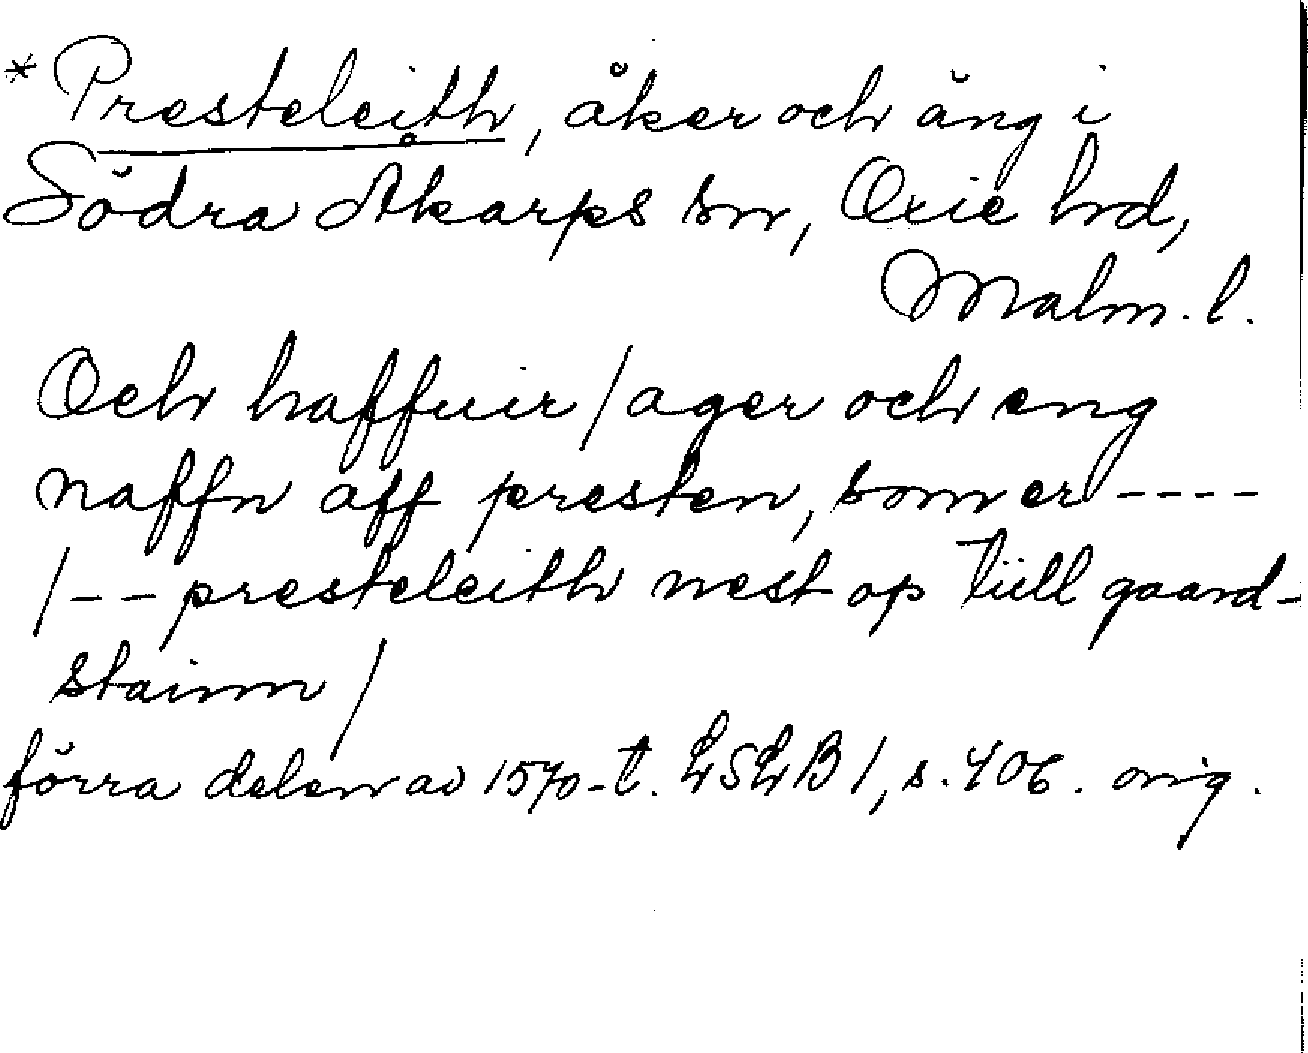 * Presteleith, åker och äng i
Södra Åkarps sn, Oxie hd,
Malm. l.
Och haffuir / ager och eng
naffn aff presten, som er ----
/ -- presteleith nest op till gaard-
stainn /
förra delen av 1570-t. LSLB 1, s. 406. orig.